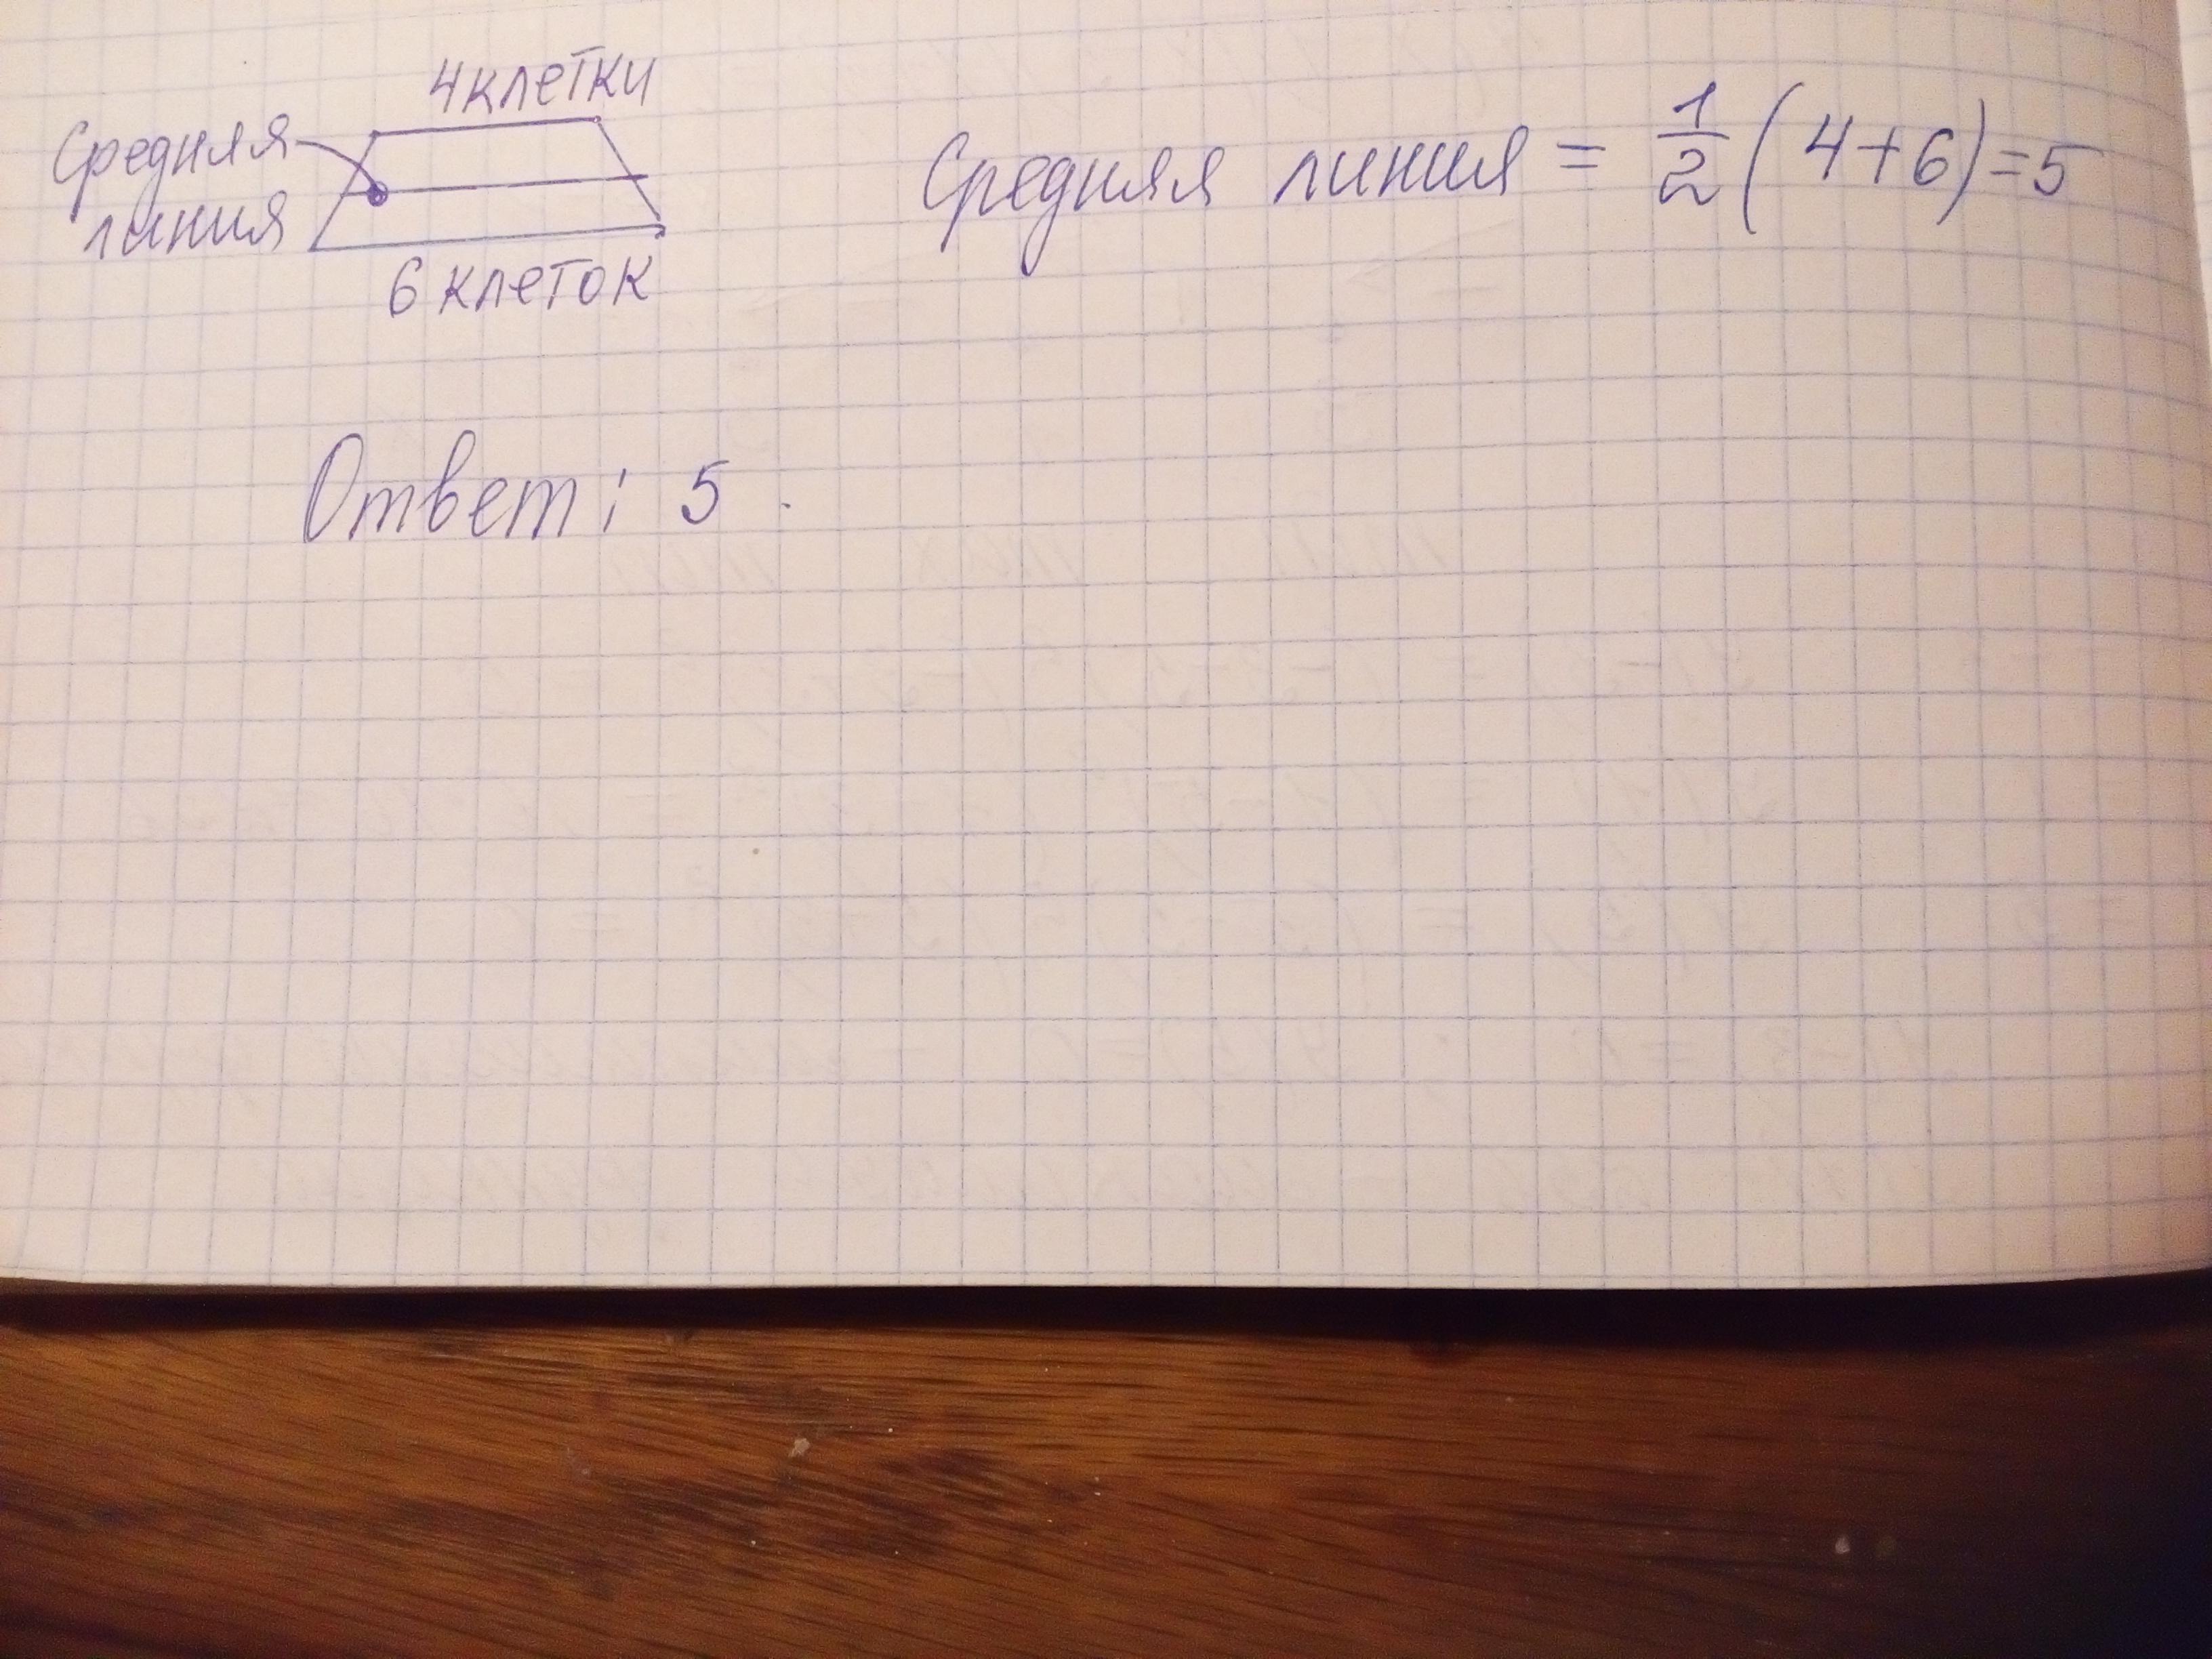 4 клетки
Средняя
линия
6 клеток
Средняя линия = 1/2 (4+6)=5
Ответ: 5.